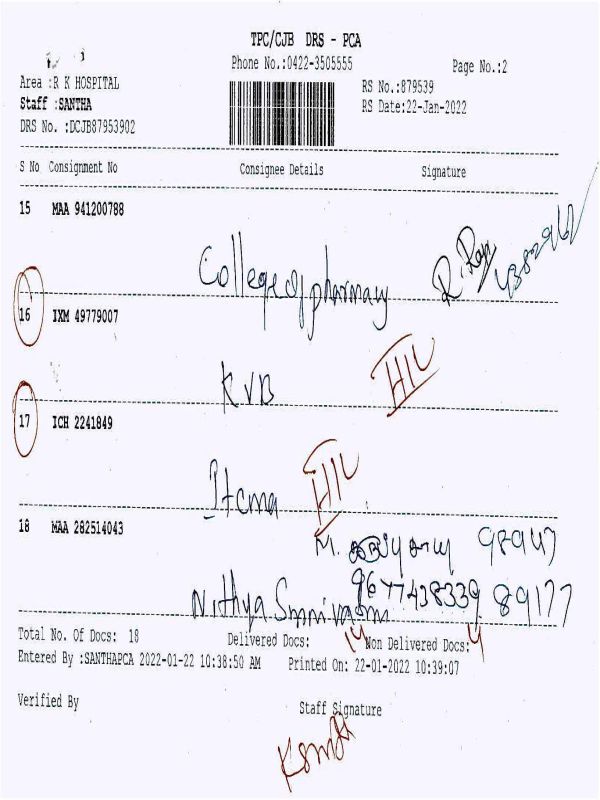 TPC/CJB DRS - PCA
Phone No.:0422-3505555
Page No.:2
Area :R K HOSPITAL
RS No.:879539
Staff :SANTHA
RS Date:22-Jan-2022
DRS No. :DCJB87953902
S No Consignment No Consignee Details Signature
15 MAA 941200788
College of pharmacy
16 IXM 49779007
KVB
17 ICH 2241849
18 MAA 282514043
M. 98947
Nithya 9677438339 89177
Total No. Of Docs: 18 Delivered Docs: 14 Non Delivered Docs: 4
Entered By :SANTHAPCA 2022-01-22 10:38:50 AM Printed On: 22-01-2022 10:39:07
Verified By Staff Signature